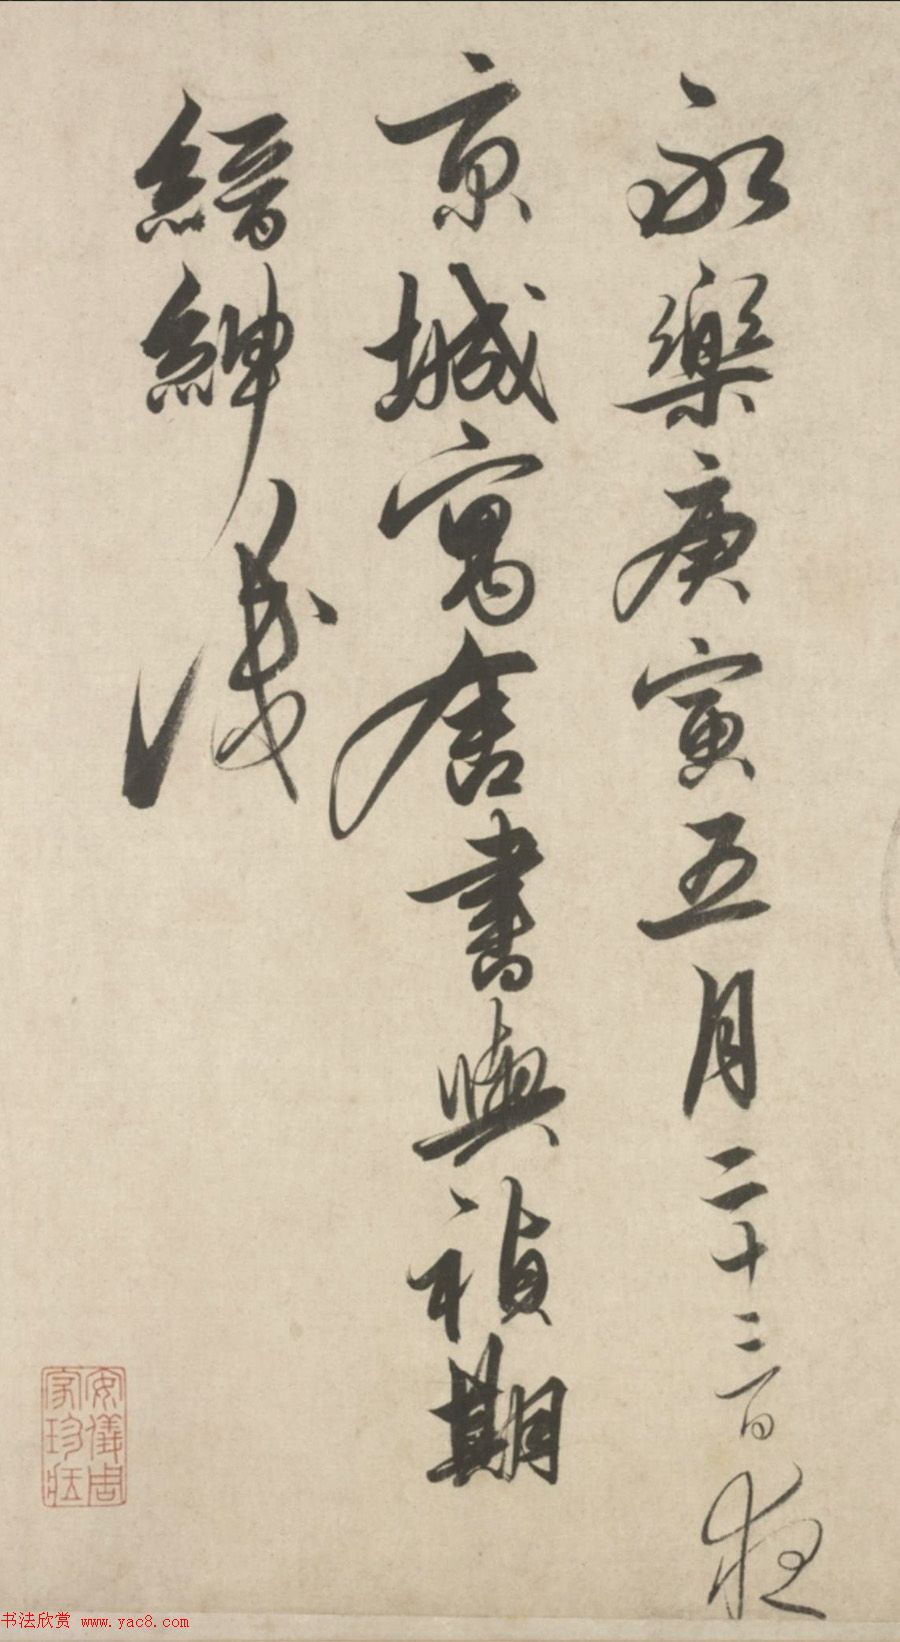 永樂庚寅五月二十三日夜
京城寓舍書與禎期
縉紳識
安儀周
家珍藏
书法欣赏 www.yac8.com